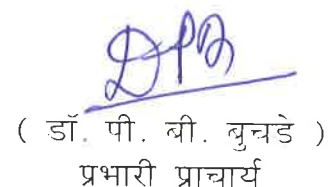 ( डॉ. पी. बी. बुचडे )
प्रभारी प्राचार्य